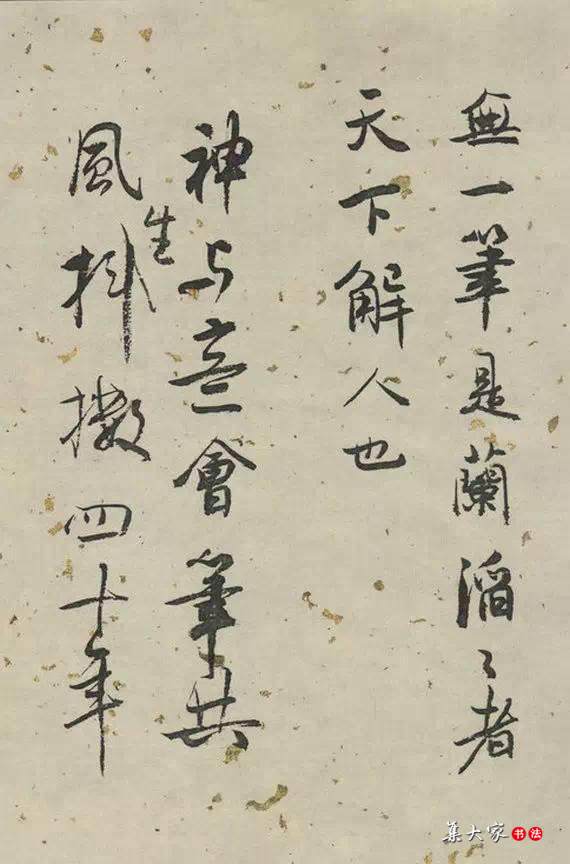 無一筆是蘭滔〻者
天下解人也
神与意會筆共
風生抖擻四十年
集大家书法